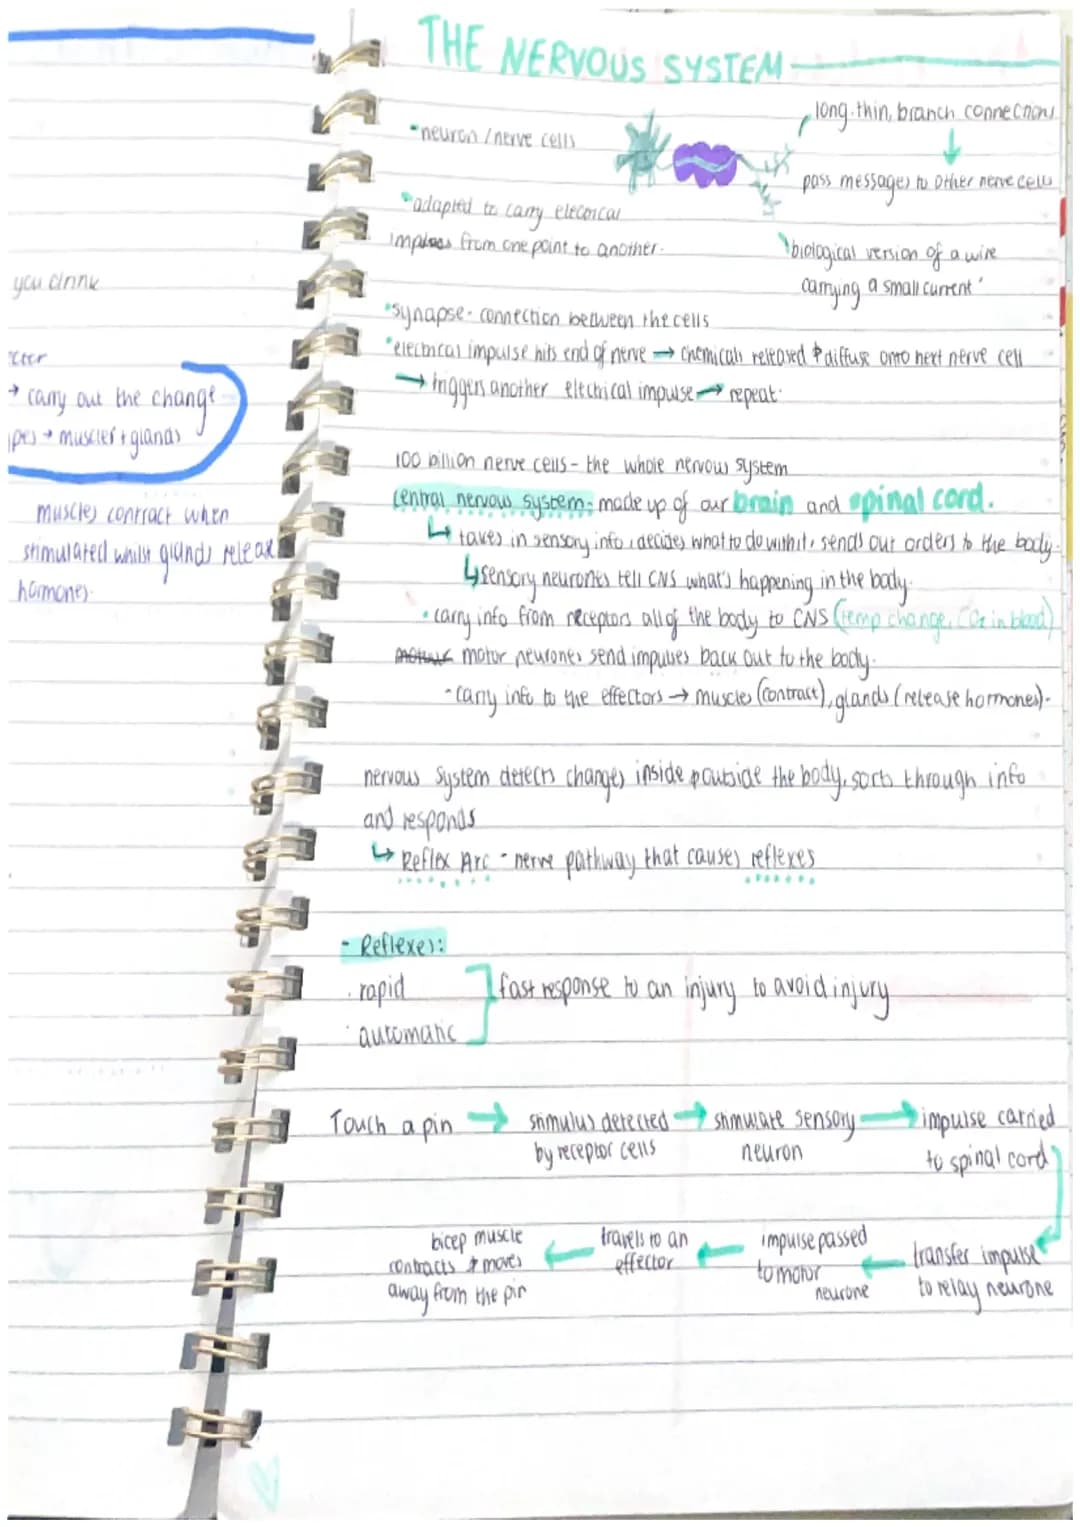 you drink
→ carry out the change
muscles + glands
muscles contract when
stimulated whilst glands release
hormones.
THE NERVOUS SYSTEM
•neuron / nerve cells
long, thin, branch connections
pass messages to other nerve cells
•adapted to carry electrical
from one point to another.
biological version of a wire
carrying a small current'
•synapse - connection between the cells
•electrical impulse hits end of nerve → chemicals released & diffuse onto next nerve cell
→ triggers another electrical impulse → repeat.
100 billion nerve cells - the whole nervous system
central nervous system: made up of our brain and spinal cord.
↳ takes in sensory info, decides what to do with it, sends out orders to the body.
↳ sensory neurones tell CNS what's happening in the body.
• carry info from receptors all of the body to CNS (temp change, CO2 in blood)
motor neurones send impulses back out to the body.
- carry info to the effectors → muscles (contract), glands (release hormones).
nervous system detects changes inside & outside the body, sorts through info
and responds
↳ Reflex Arc - nerve pathway that causes reflexes
- Reflexes:
· rapid
· automatic
fast response to an injury to avoid injury
Touch a pin → stimulus detected → stimulate sensory → impulse carried
by receptor cells neuron to spinal cord
bicep muscle ← travels to an ← impulse passed ← transfer impulse
contracts & moves effector to motor to relay neurone
away from the pin neurone